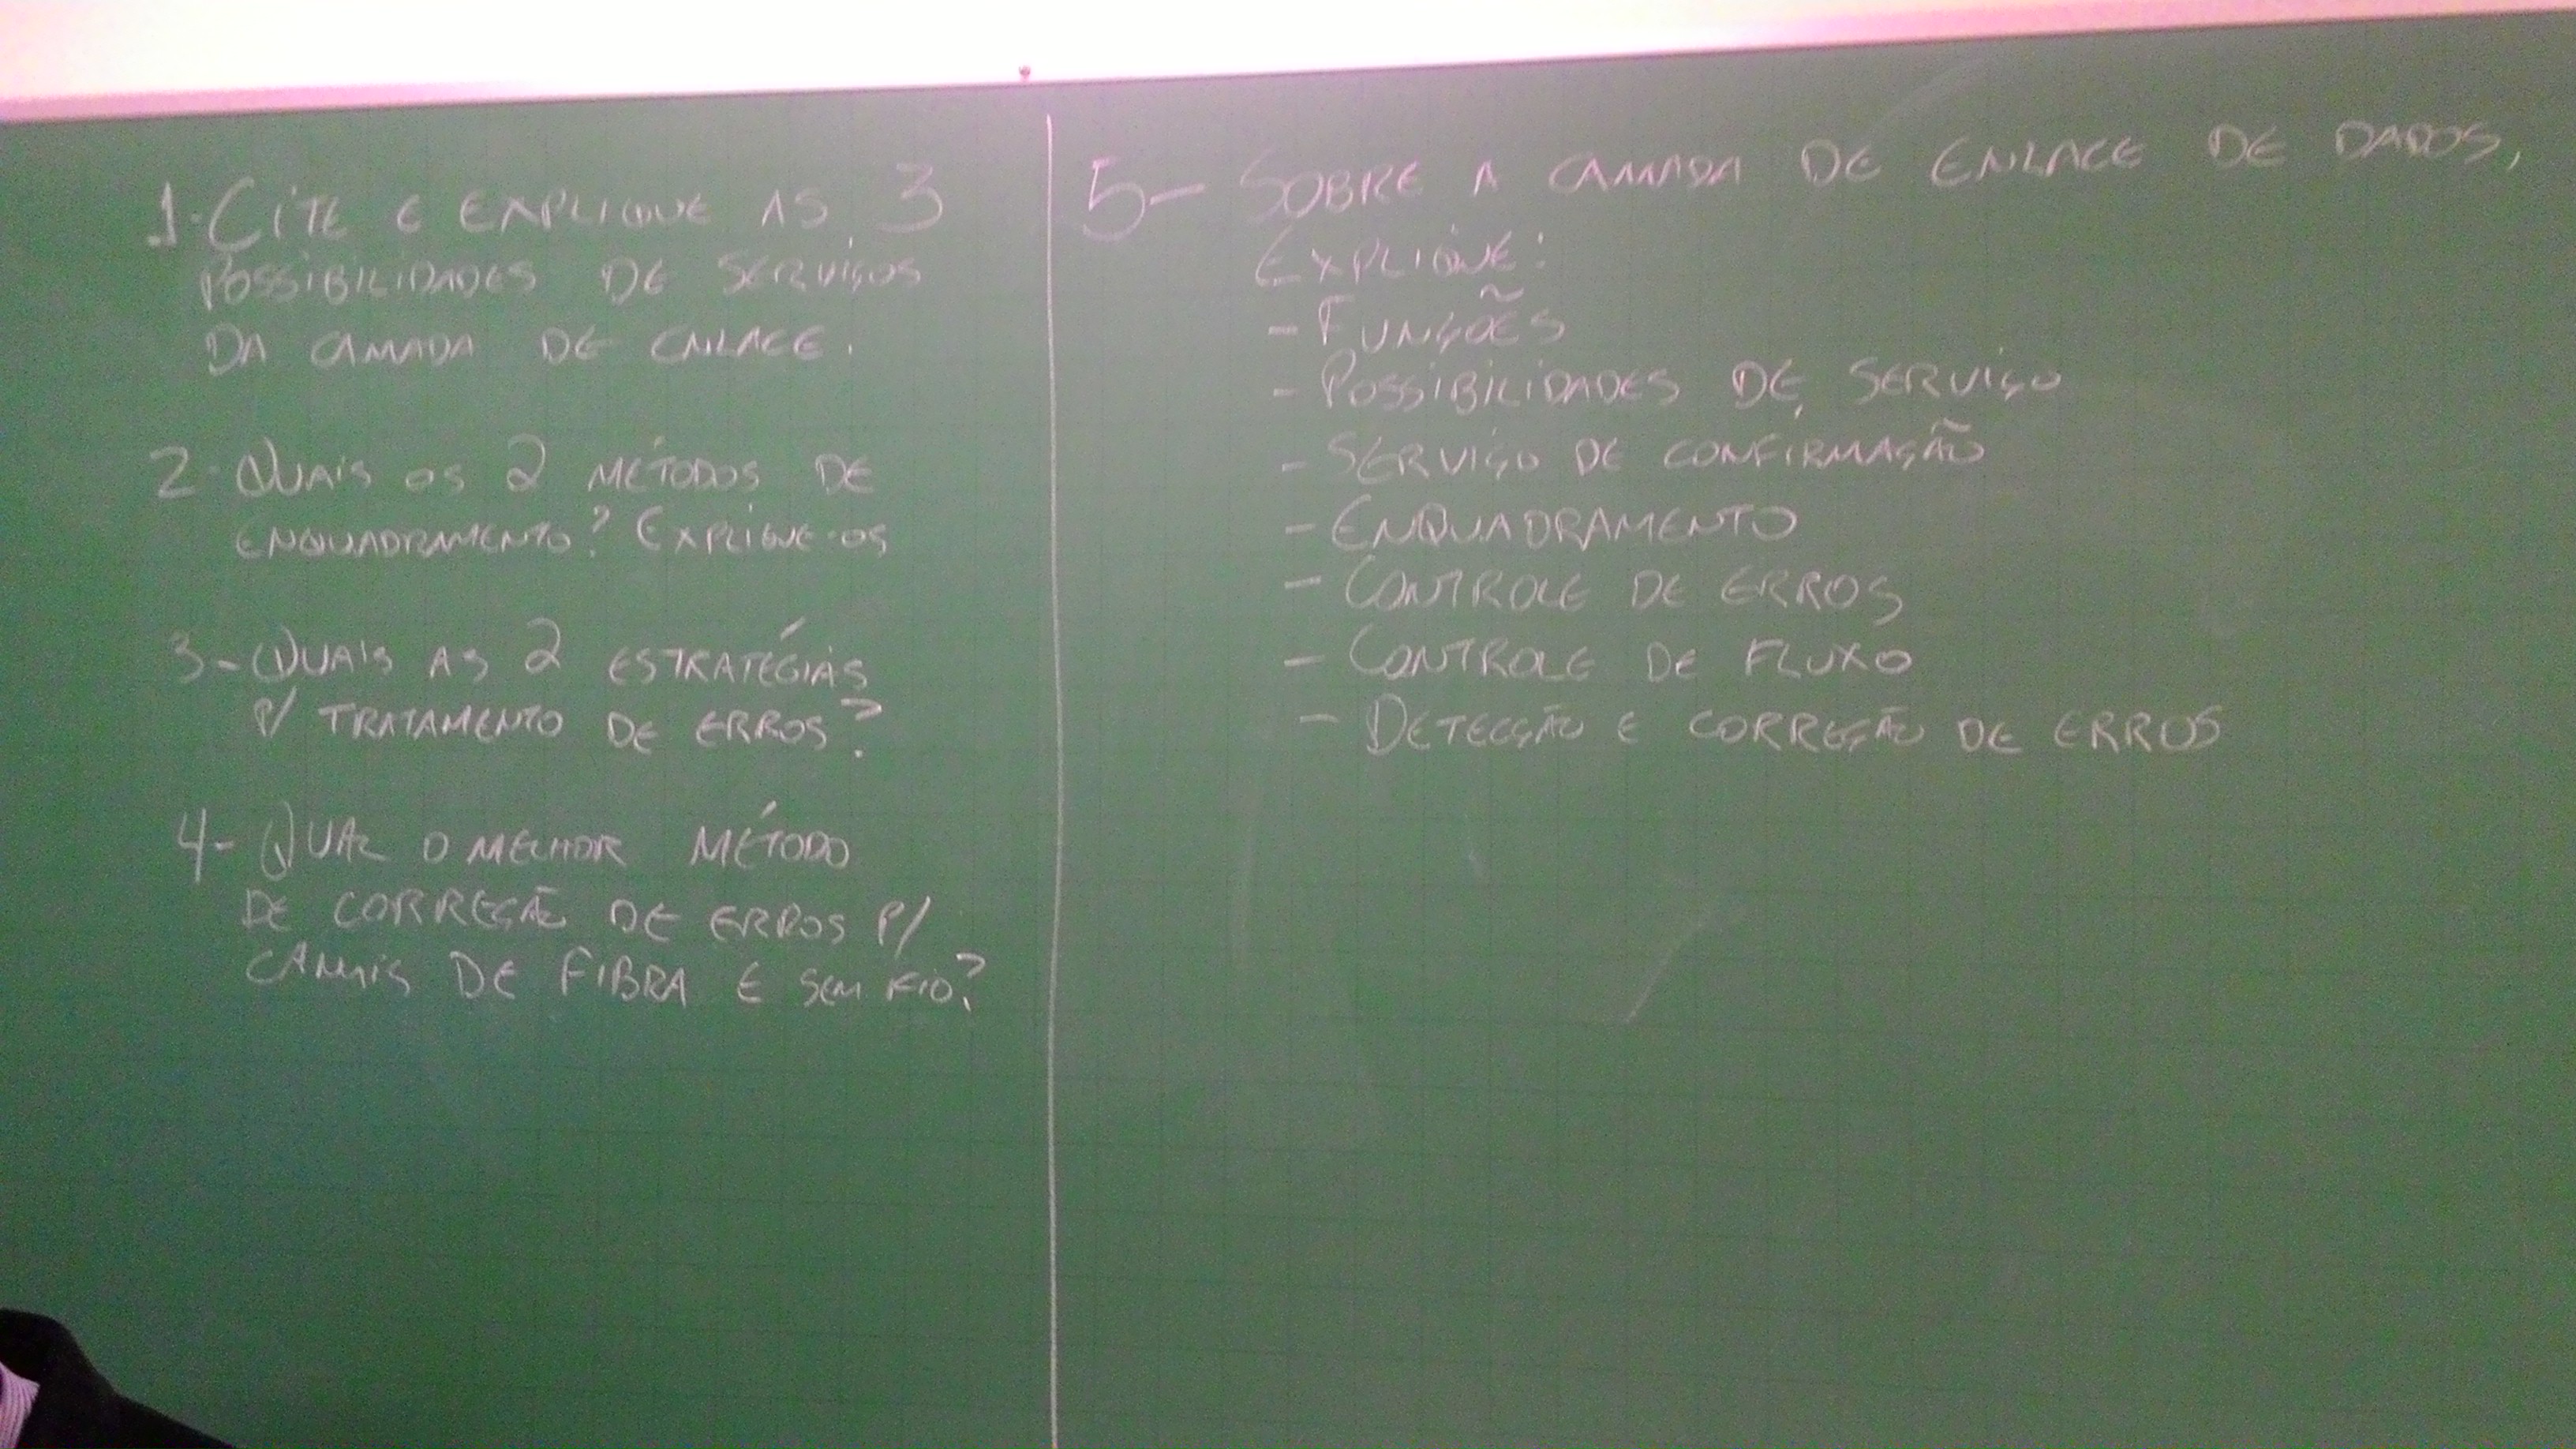 1-CITE E EXPLIQUE AS 3
POSSIBILIDADES DE SERVIÇOS
DA CAMADA DE ENLACE.
2-QUAIS OS 2 MÉTODOS DE
ENQUADRAMENTO? EXPLIQUE-OS
3-QUAIS AS 2 ESTRATÉGIAS
P/ TRATAMENTO DE ERROS?
4-QUAL O MELHOR MÉTODO
DE CORREÇÃO DE ERROS P/
CANAIS DE FIBRA E SEM FIO?
5-SOBRE A CAMADA DE ENLACE DE DADOS,
EXPLIQUE:
-FUNÇÕES
-POSSIBILIDADES DE SERVIÇO
-SERVIÇO DE CONFIRMAÇÃO
-ENQUADRAMENTO
-CONTROLE DE ERROS
-CONTROLE DE FLUXO
-DETECÇÃO E CORREÇÃO DE ERROS